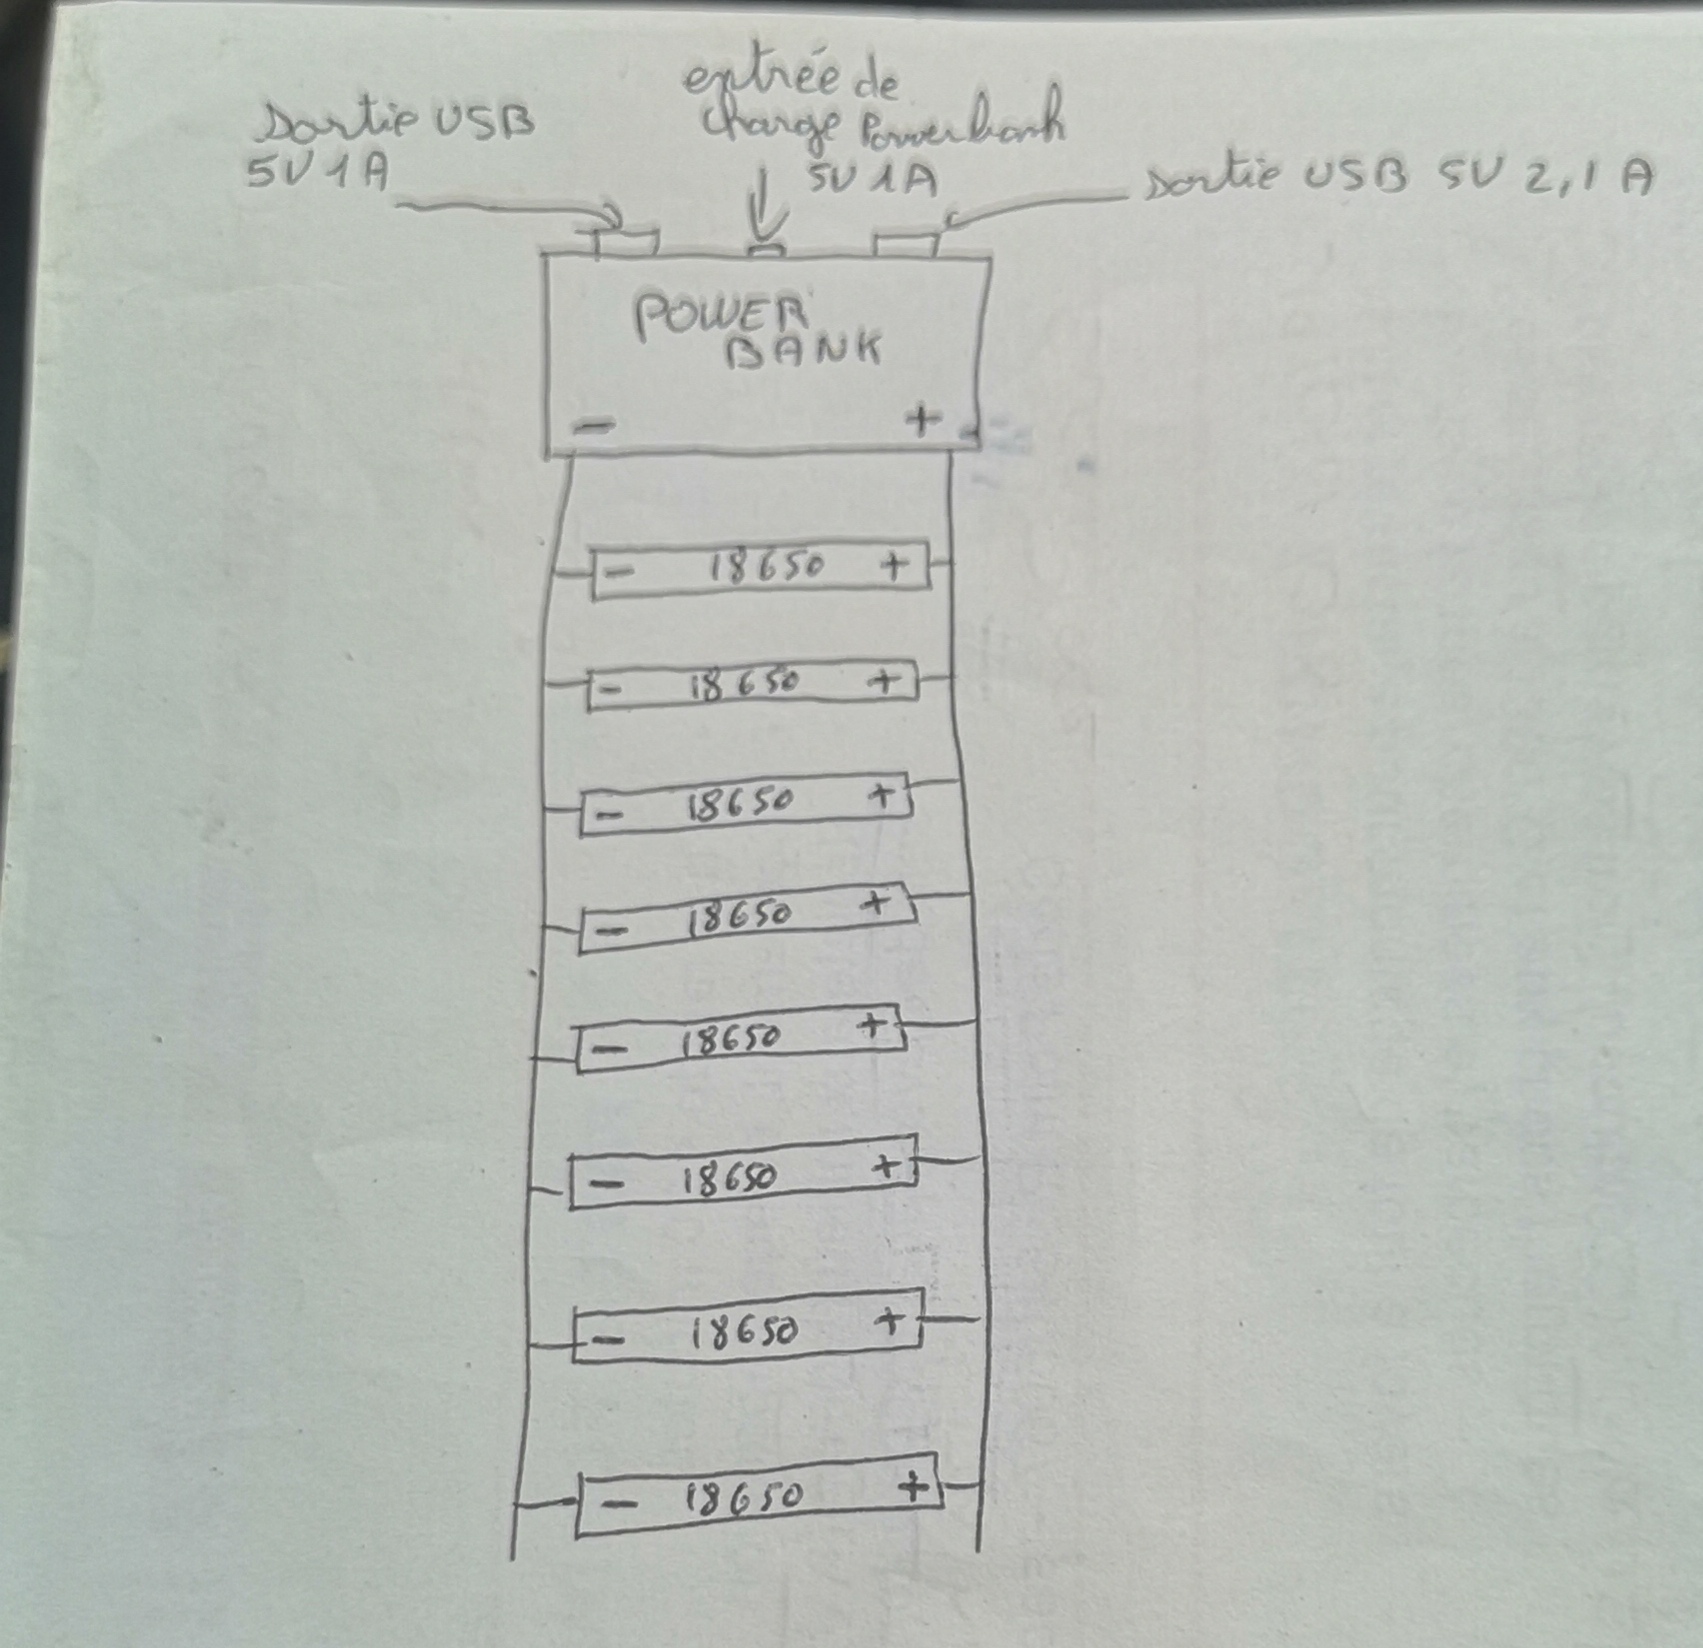 Sortie USB
5V 1A
entrée de
charge Powerbank
5V 1A
Sortie USB 5V 2,1 A
POWER
BANK
- +
- 18650 +
- 18650 +
- 18650 +
- 18650 +
- 18650 +
- 18650 +
- 18650 +
- 18650 +